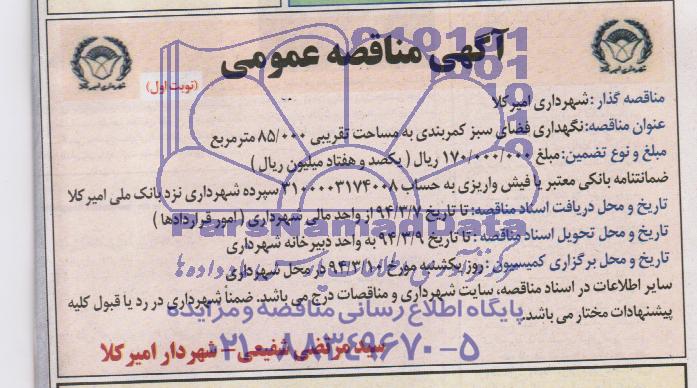 آگهی مناقصه عمومی
(نوبت اول)
مناقصه گذار : شهرداری امیرکلا
عنوان مناقصه: نگهداری فضای سبز کمربندی به مساحت تقریبی ۸۵/۰۰۰ مترمربع
مبلغ و نوع تضمین: مبلغ ۱۷۰/۰۰۰/۰۰۰ ریال ( یکصد و هفتاد میلیون ریال )
ضمانتنامه بانکی معتبر یا فیش واریزی به حساب ۳۱۰۰۰۰۳۱۷۴۰۰۸ سپرده شهرداری نزد بانک ملی امیرکلا
تاریخ و محل دریافت اسناد مناقصه: تا تاریخ ۹۴/۳/۷ از واحد مالی شهرداری ( امور قراردادها )
تاریخ و محل تحویل اسناد مناقصه : تا تاریخ ۹۴/۳/۹ به واحد دبیرخانه شهرداری
تاریخ و محل برگزاری کمیسیون : روز یکشنبه مورخ ۹۴/۳/۱۰ در محل شهرداری
سایر اطلاعات در اسناد مناقصه، سایت شهرداری و مناقصات درج می باشد. ضمناً شهرداری در رد یا قبول کلیه
پیشنهادات مختار می باشد.
سید مرتضی شفیعی - شهردار امیرکلا
ParsNamadData
پایگاه اطلاع رسانی مناقصه و مزایده
۰۲۱-۸۸۳۴۹۶۷۰-۵